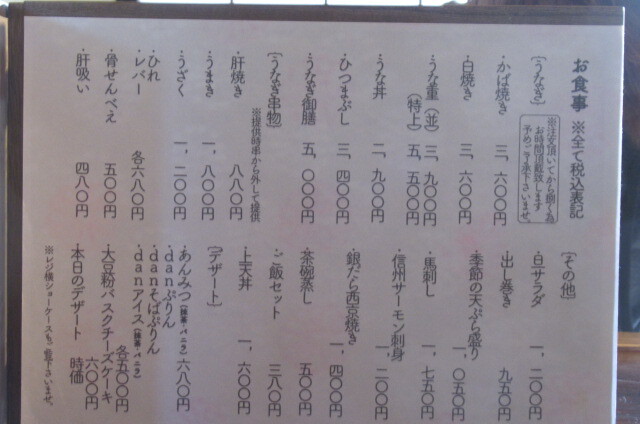 お食事 ※全て税込表記
〔うなぎ〕
※注文頂いてから捌く為
お時間頂戴致します
予めご了承下さいませ。
・かば焼き 三、六〇〇円
・白焼き 三、六〇〇円
・うな重（並） 三、九〇〇円
（特上） 五、五〇〇円
・うな丼 二、九〇〇円
・ひつまぶし 三、四〇〇円
・うなぎ御膳 五、〇〇〇円
〔うなぎ串物〕
※提供時串から外して提供
・肝焼き 八八〇円
・うまき 一、八〇〇円
・うざく 一、二〇〇円
・ひれ
・レバー 各六八〇円
・骨せんべえ 五〇〇円
・肝吸い 四八〇円
〔その他〕
・旦一サラダ 一、二〇〇円
・出し巻き 九五〇円
・季節の天ぷら盛り 一、〇五〇円
・馬刺し 一、七五〇円
・信州サーモン刺身 一、二〇〇円
・銀だら西京焼き 一、四〇〇円
・茶碗蒸し 五〇〇円
・ご飯セット 三八〇円
・上天丼 一、六〇〇円
〔デザート〕
・あんみつ（抹茶・バニラ） 六八〇円
・danぷりん
・danそばぷりん
・danアイス（抹茶・バニラ） 各五〇〇円
・大豆粉バスクチーズケーキ 六〇〇円
・本日のデザート 時価
※レジ横ショーケースもご覧下さいませ。